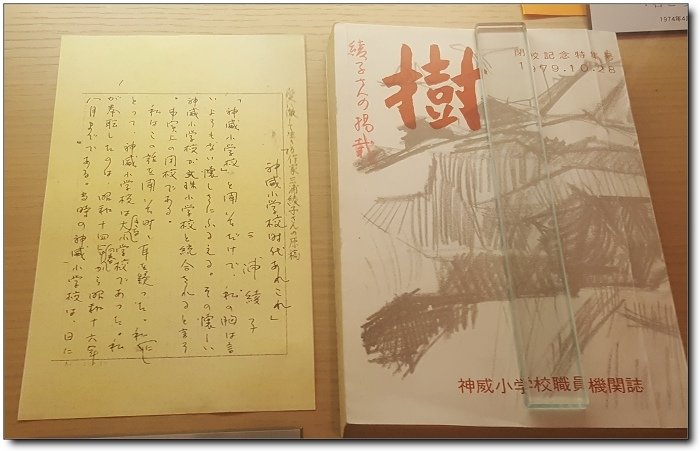 作家三浦綾子さんの原稿
「神威小学校時代あれこれ」
三浦綾子
「神威小学校」と聞いただけで、私の胸は言
いようもない懐しさにふるえる。その懐しい
神威小学校が文珠小学校と統合されると言う
。事実上の閉校である。
私はこの話を聞いた時、耳を疑った。私に
とって、神威小学校は大小学校であった。私
が奉職したのは、昭和十四年から昭和十六年
八月までである。当時の神威小学校は、日に
綾子さんの掲載
樹
閉校記念特集号
1979.10.28
神威小学校職員機関誌
1974年4